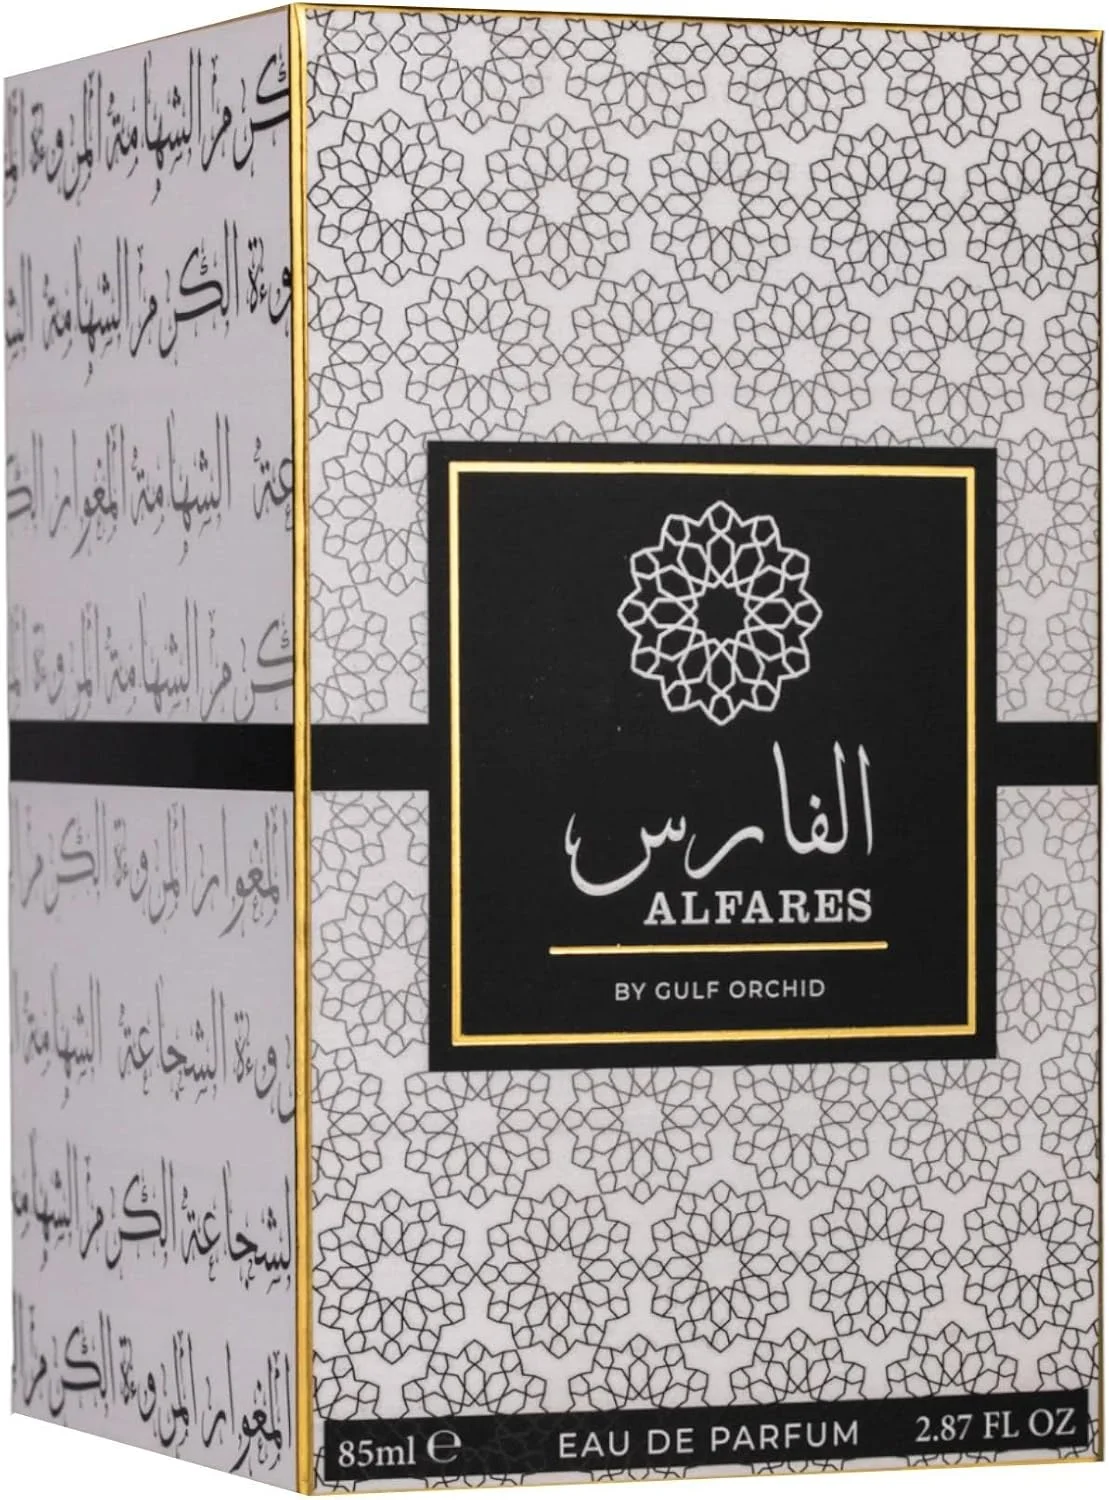 الفارس
ALFARES
BY GULF ORCHID
85ml ℮ EAU DE PARFUM 2.87 FL OZ
كرم الشهامة المروءة
وءة الكرم الشهامة
الشهامة المغوار
كرم الشهامة المروءة
المغوار المروءة الكرم
وءة الشجاعة الشهامة
الشجاعة الكرم الشهامة
المغوار المروءة الكرم